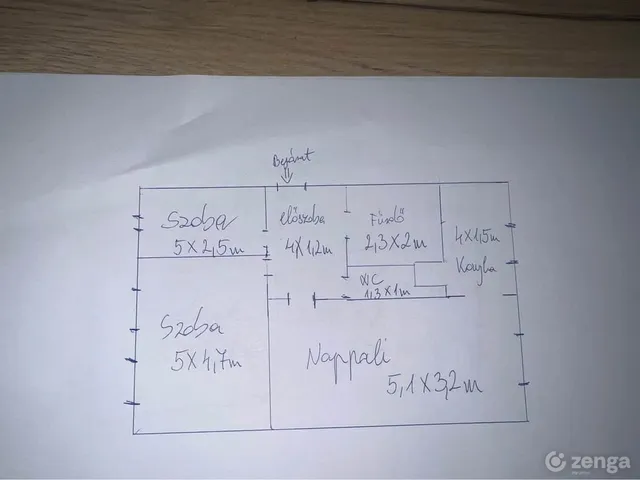 Bejárat
Szoba
5 X 2,5 m
előszoba
4 X 1,2 m
Fürdő
2,3 X 2 m
4 X 1,5 m
Konyha
WC
1,3 X 1 m
Szoba
5 X 4,7 m
Nappali
5,1 X 3,2 m
zenga